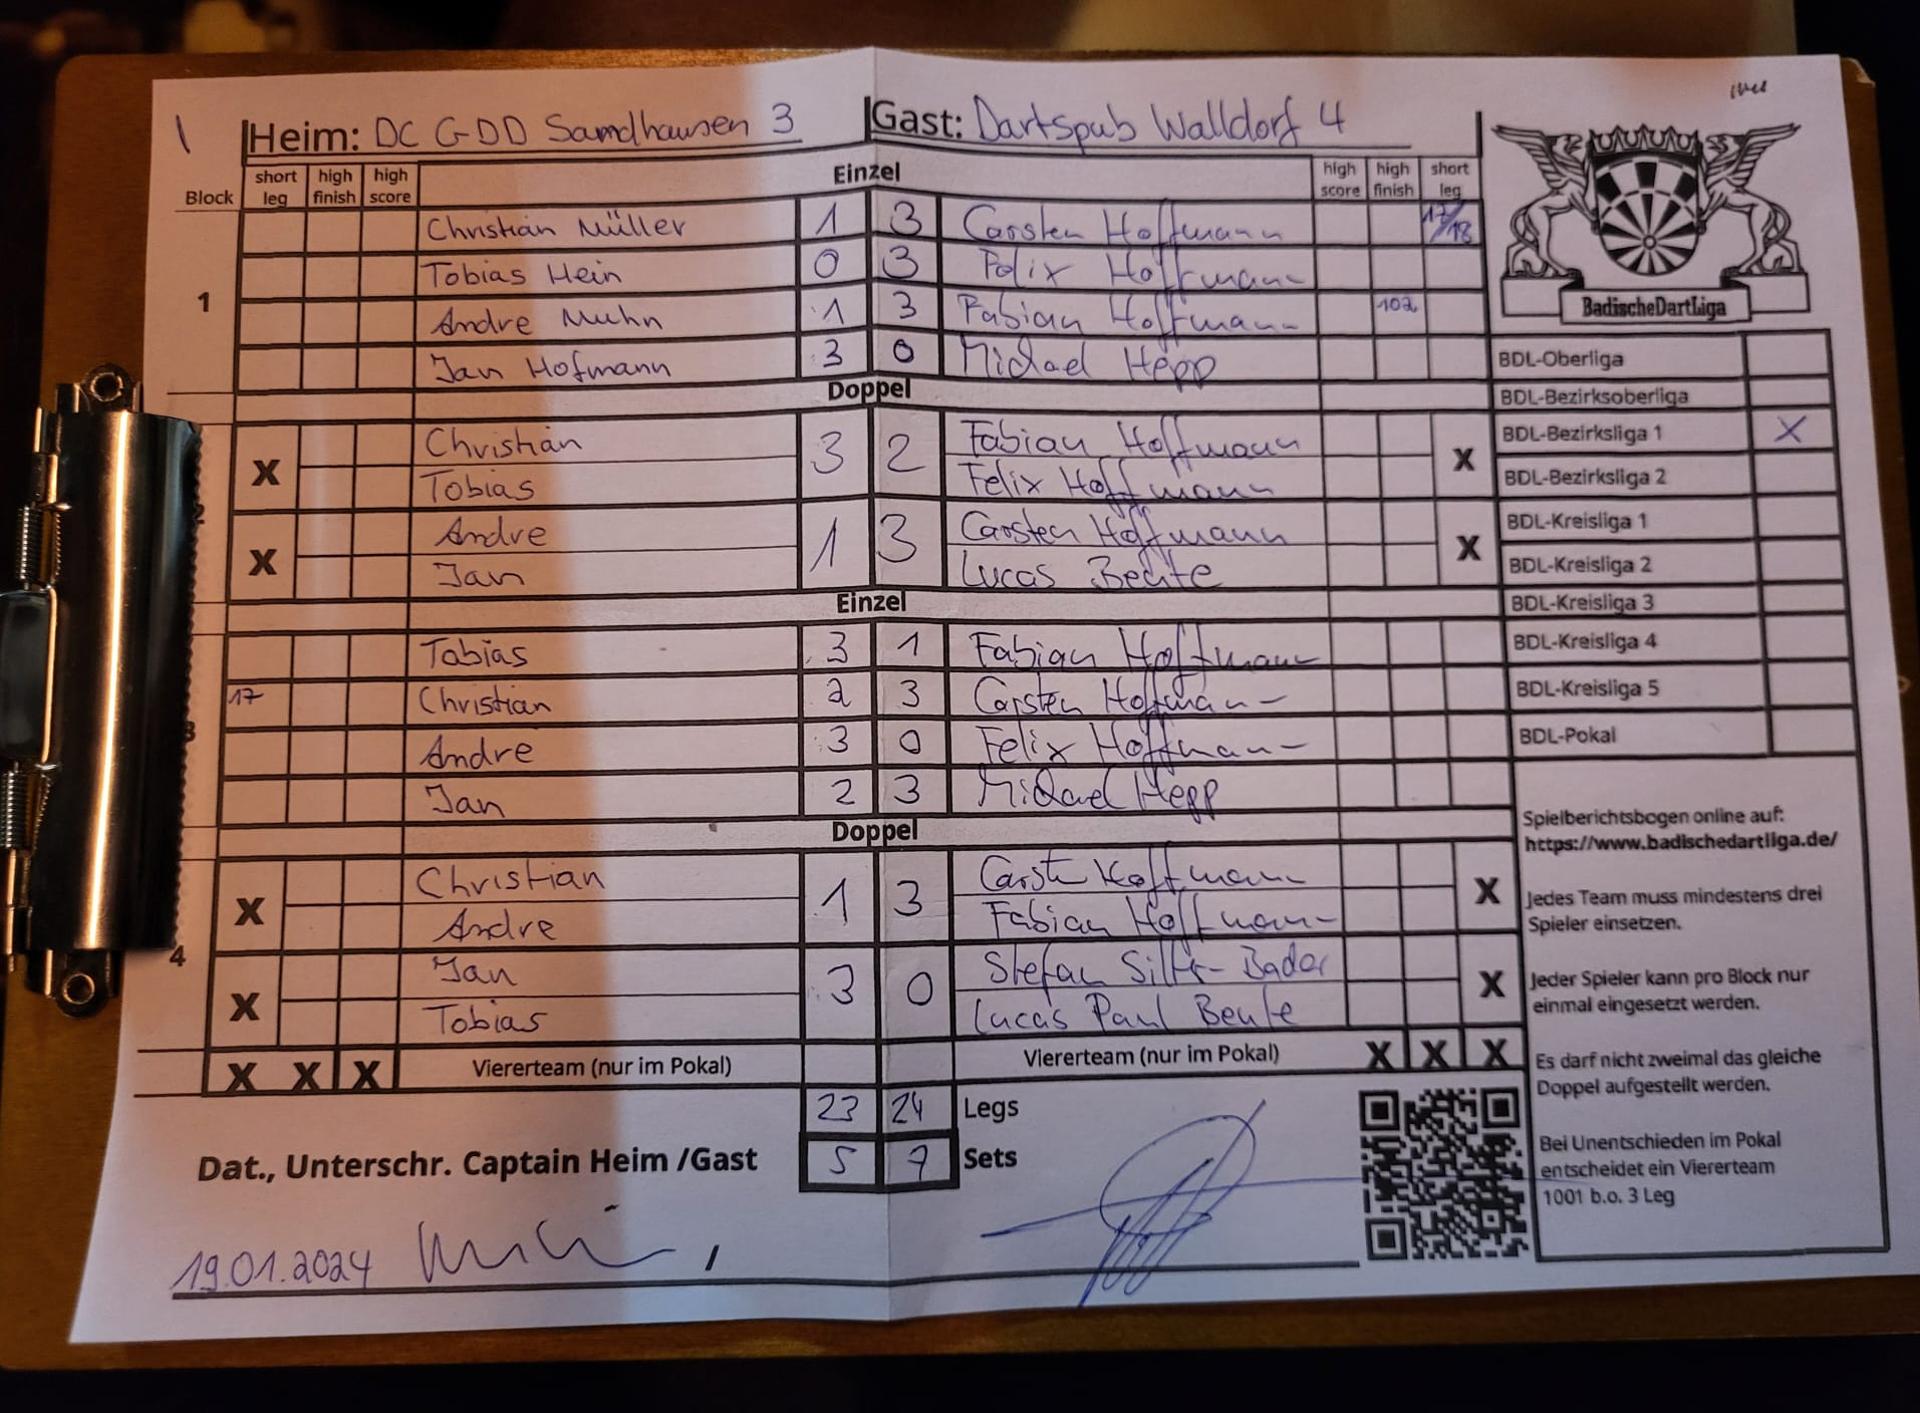 1 Heim: DC GDD Sandhausen 3 Gast: Dartspub Walldorf 4
Block short leg high finish high score Einzel high score high finish short leg
1
Christian Müller 1 3 Carsten Hoffmann 17/18
Tobias Hein 0 3 Felix Hoffmann
Andre Muhn 1 3 Fabian Hoffmann 102
Jan Hofmann 3 0 Michael Hepp
Doppel
X Christian 3 2 Fabian Hoffmann X
Tobias Felix Hoffmann
X Andre 1 3 Carsten Hoffmann X
Jan Lucas Beute
Einzel
Tobias 3 1 Fabian Hoffmann
17 Christian 2 3 Carsten Hoffmann
Andre 3 0 Felix Hoffmann
Jan 2 3 Michael Hepp
Doppel
4
X Christian 1 3 Carsten Hoffmann X
Andre Fabian Hoffmann
X Jan 3 0 Stefan X
Tobias Lucas Paul Beute
X X X Viererteam (nur im Pokal) Viererteam (nur im Pokal) X X X
23 24 Legs
Dat., Unterschr. Captain Heim /Gast 5 7 Sets
19.01.2024 ,
BadischeDartLiga
BDL-Oberliga
BDL-Bezirksoberliga
BDL-Bezirksliga 1 X
BDL-Bezirksliga 2
BDL-Kreisliga 1
BDL-Kreisliga 2
BDL-Kreisliga 3
BDL-Kreisliga 4
BDL-Kreisliga 5
BDL-Pokal
Spielberichtsbogen online auf:
https://www.badischedartliga.de/
Jedes Team muss mindestens drei
Spieler einsetzen.
Jeder Spieler kann pro Block nur
einmal eingesetzt werden.
Es darf nicht zweimal das gleiche
Doppel aufgestellt werden.
Bei Unentschieden im Pokal
entscheidet ein Viererteam
1001 b.o. 3 Leg